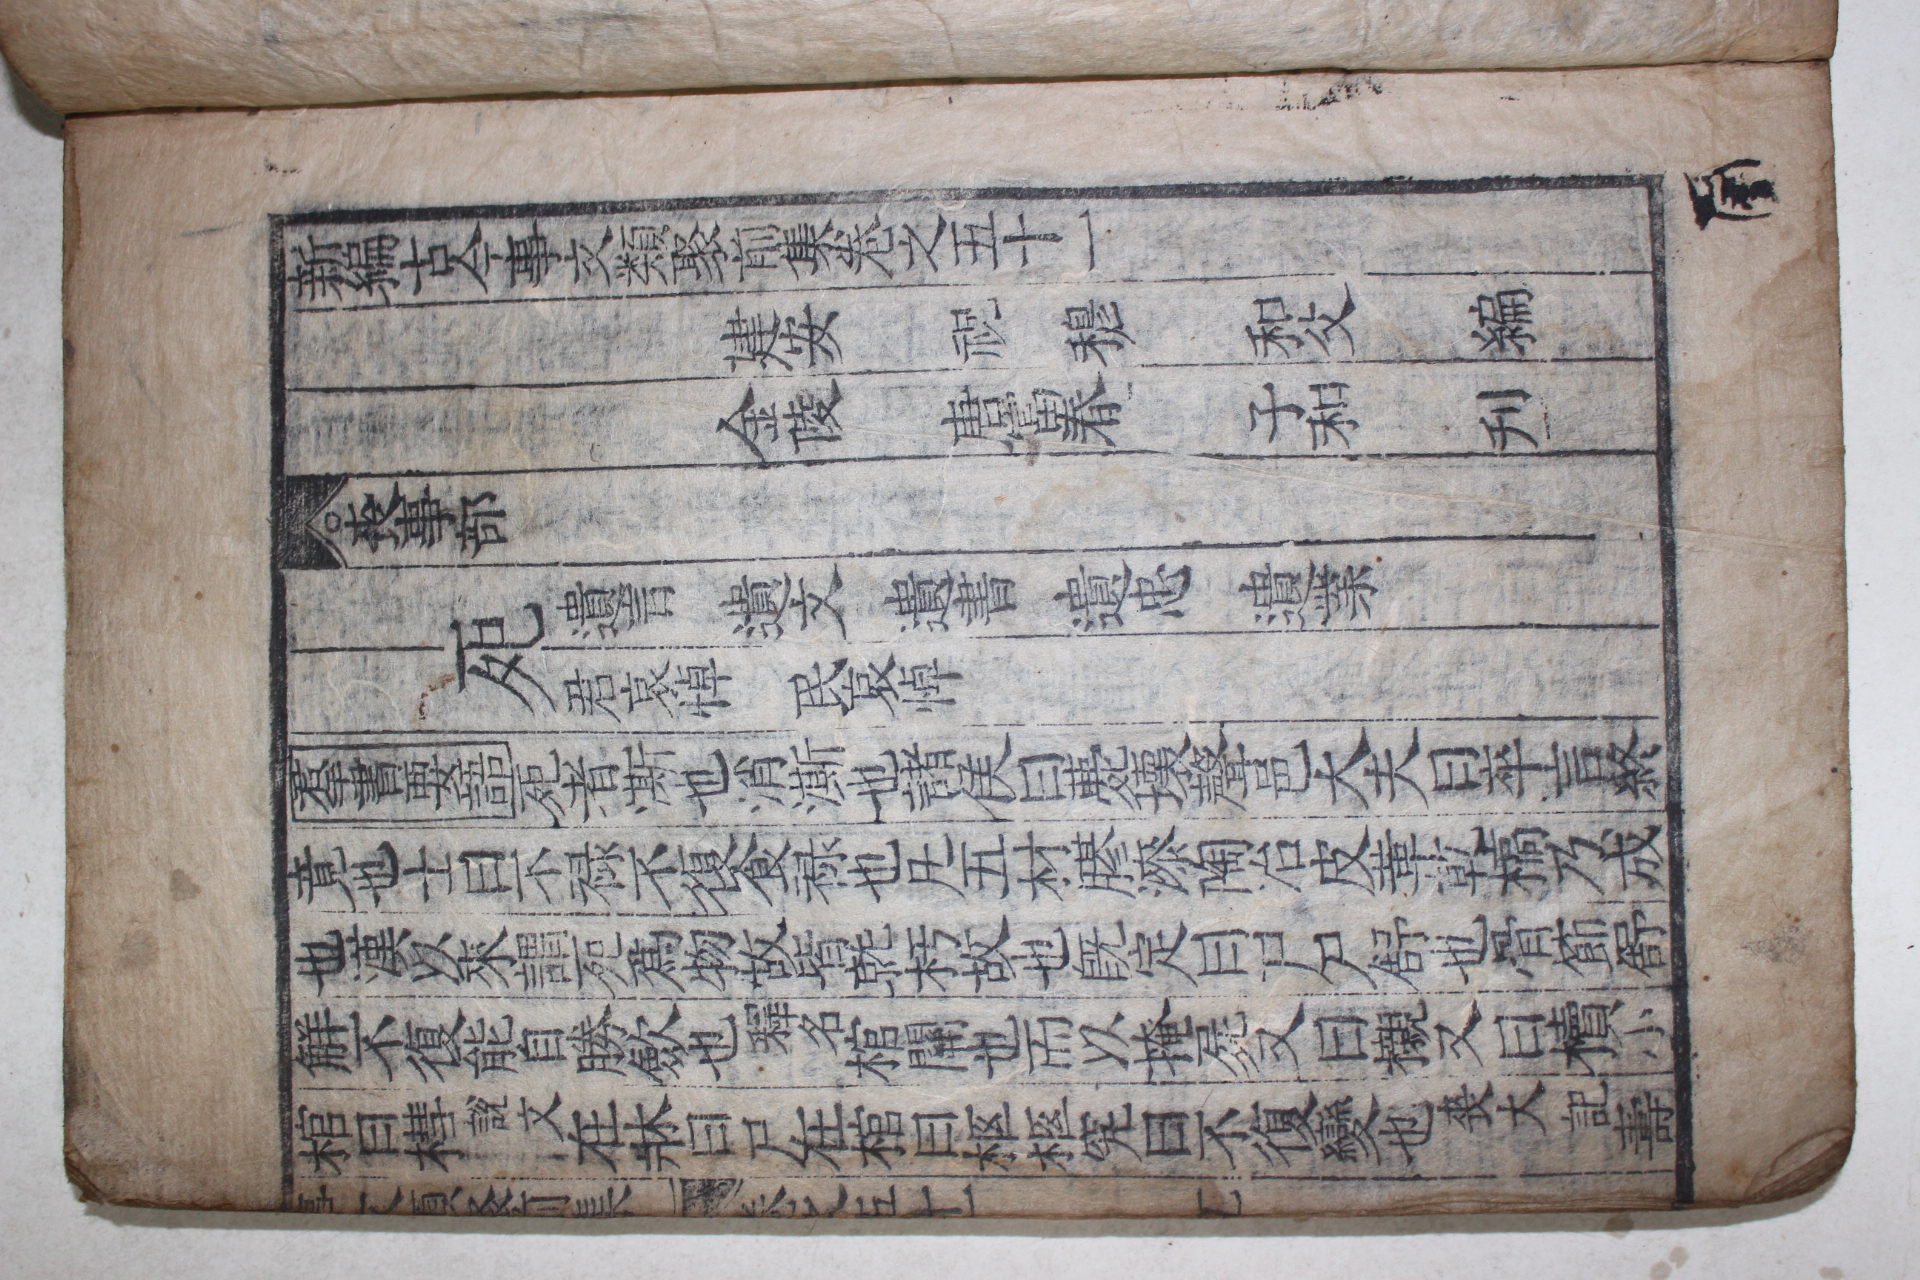 新編古今事文類聚前集卷之五十一
建安 祝 穆 和父 編
金陵 唐富春 子和 刊
○喪事部
死
遺言 遺文 遺書 遺忠 遺業
君哀悼 民哀悼
羣書要語死者澌也消澌也諸侯曰薨壞聲邑大夫曰卒言終
竟也士曰不禄不復食禄也凡五材膠漆陶冶皮革乾槁乃成
也漢以來謂死爲物故皆就朽故也既定曰尸尸舒也骨節舒
解不復能自勝歛也釋名棺關也而以掩屍又曰櫬又曰櫝小
棺曰槥說文在牀曰尸在棺曰柩柩究曰不復變也喪大記壽
事文類聚前集 卷之五十一